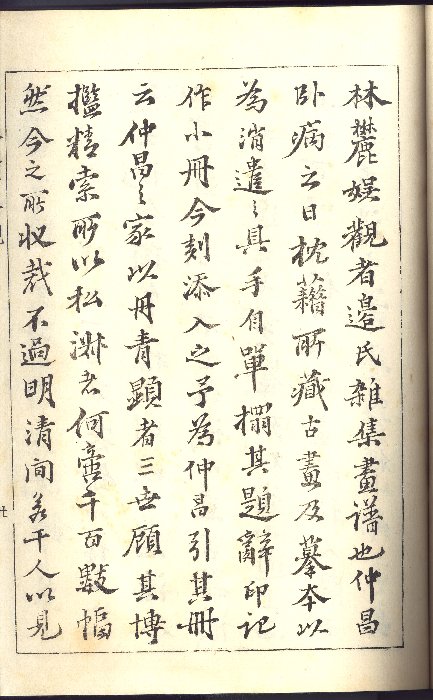 林麓娛觀者邉氏雜集畫譜也仲昌
卧病云日枕藉所藏古畫及摹本以
為消遣之具手自單擱其題辭印記
作小冊今刻添入之予為仲昌引其冊
云仲昌之家以丹青顕者三世顧其博
檻精索所以松澥老何啻千百數幅
然今之所收裁不過明清間若干人以見